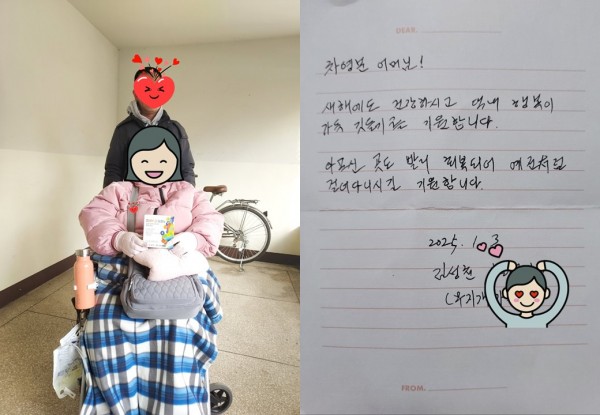 DEAR.
차영분 어머님!
새해에도 건강하시고 댁내 행복이
가득 깃들기를 기원합니다.
아프신 곳도 빨리 회복되어 예전처럼
걸어다니시길 기원합니다.
2025. 1. 3
김성천
(무지개
FROM.